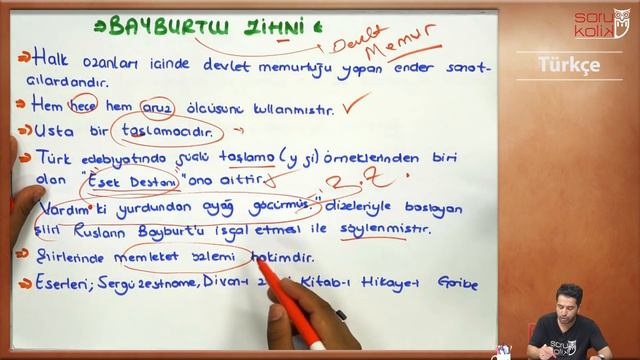 BAYBURTLU ZİHNİ
Devlet
Memur
Halk ozanları içinde devlet memurluğu yapan ender sanat-
çılardandır.
Hem hece hem aruz ölçüsünü kullanmıştır.
Usta bir taşlamacıdır.
Türk edebiyatında güçlü taşlama (y şi) örneklerinden biri
olan "Eşek Destanı" ona aittir.
"Vardım ki yurdundan ayağ göçürmüş." dizeleriyle başlayan
şiiri Rusların Bayburt'u işgal etmesi ile söylenmiştir.
Şiirlerinde memleket özlemi hakimdir.
Eserleri; Sergüzeştname, Divan-ı Kitab-ı Hikaye-i Garibe
soru
kolik
Türkçe
soru
kolik